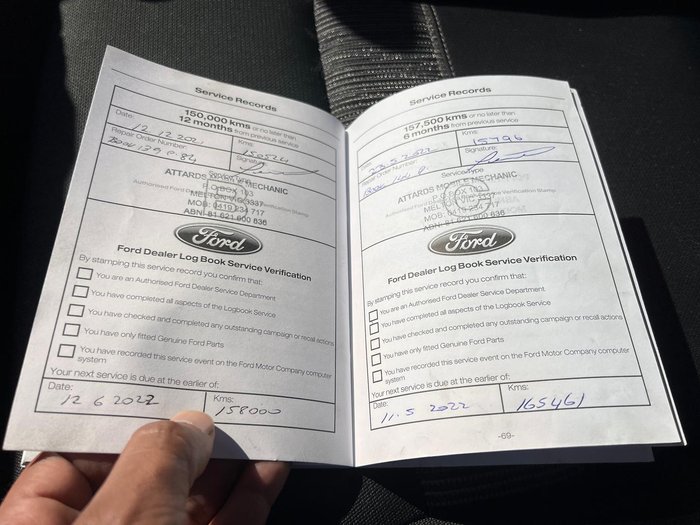 Service Records
150,000 kms or no later than
12 months from previous service
Date: 12 12 202
Kms: 150524
Repair Order Number:
Signature:
Service Type
ATTARDS MOBILE MECHANIC
P.O BOX 103
MELTON VIC 3337
MOB: 0419 234 717
ABN: 81 621 600 836
Ford
Ford Dealer Log Book Service Verification
By stamping this service record you confirm that:
You are an Authorised Ford Dealer Service Department
You have completed all aspects of the Logbook Service
You have checked and completed any outstanding campaign or recall actions
You have only fitted Genuine Ford Parts
You have recorded this service event on the Ford Motor Company computer
system
Your next service is due at the earlier of:
Date: 12 6 2022
Kms: 158000
Service Records
157,500 kms or no later than
6 months from previous service
Date: 23.5.2022
Kms:
Repair Order Number:
Signature:
Service Type
ATTARDS MOBILE MECHANIC
P.O BOX 103
MOB: 0419 234 717
ABN: 81 621 600 836
Ford
Ford Dealer Log Book Service Verification
By stamping this service record you confirm that:
You are an Authorised Ford Dealer Service Department
You have completed all aspects of the Logbook Service
You have checked and completed any outstanding campaign or recall actions
You have only fitted Genuine Ford Parts
You have recorded this service event on the Ford Motor Company computer
system
Your next service is due at the earlier of:
Date: 11.5 2022
Kms: 165461
-69-